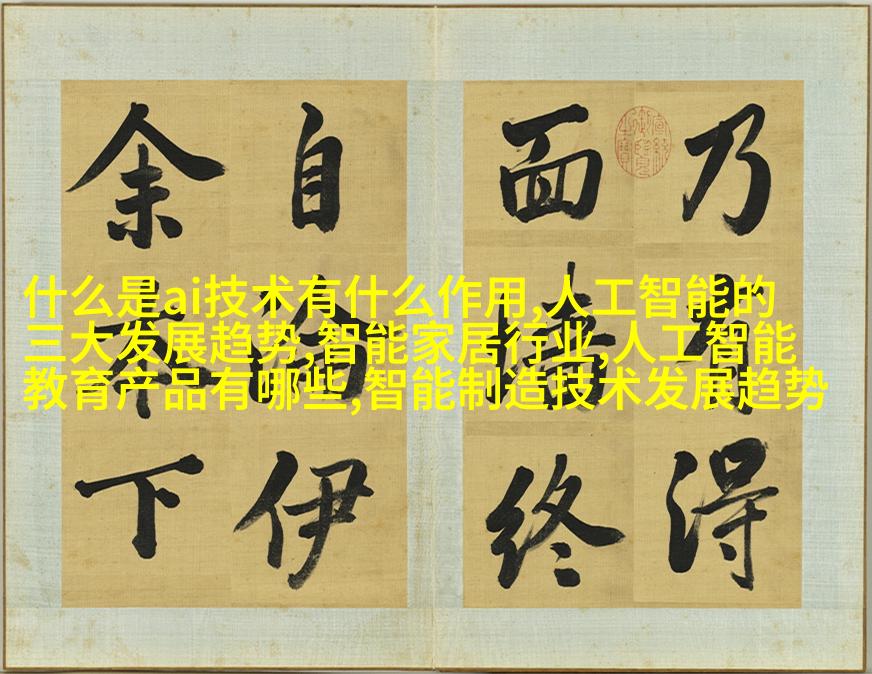 什么是ai技术有什么作用,人工智能的
三大发展趋势,智能家居行业,人工智能
教育产品有哪些,智能制造技术发展趋势
乃有得
面終
自伊
余本下
宣統御覽之寶